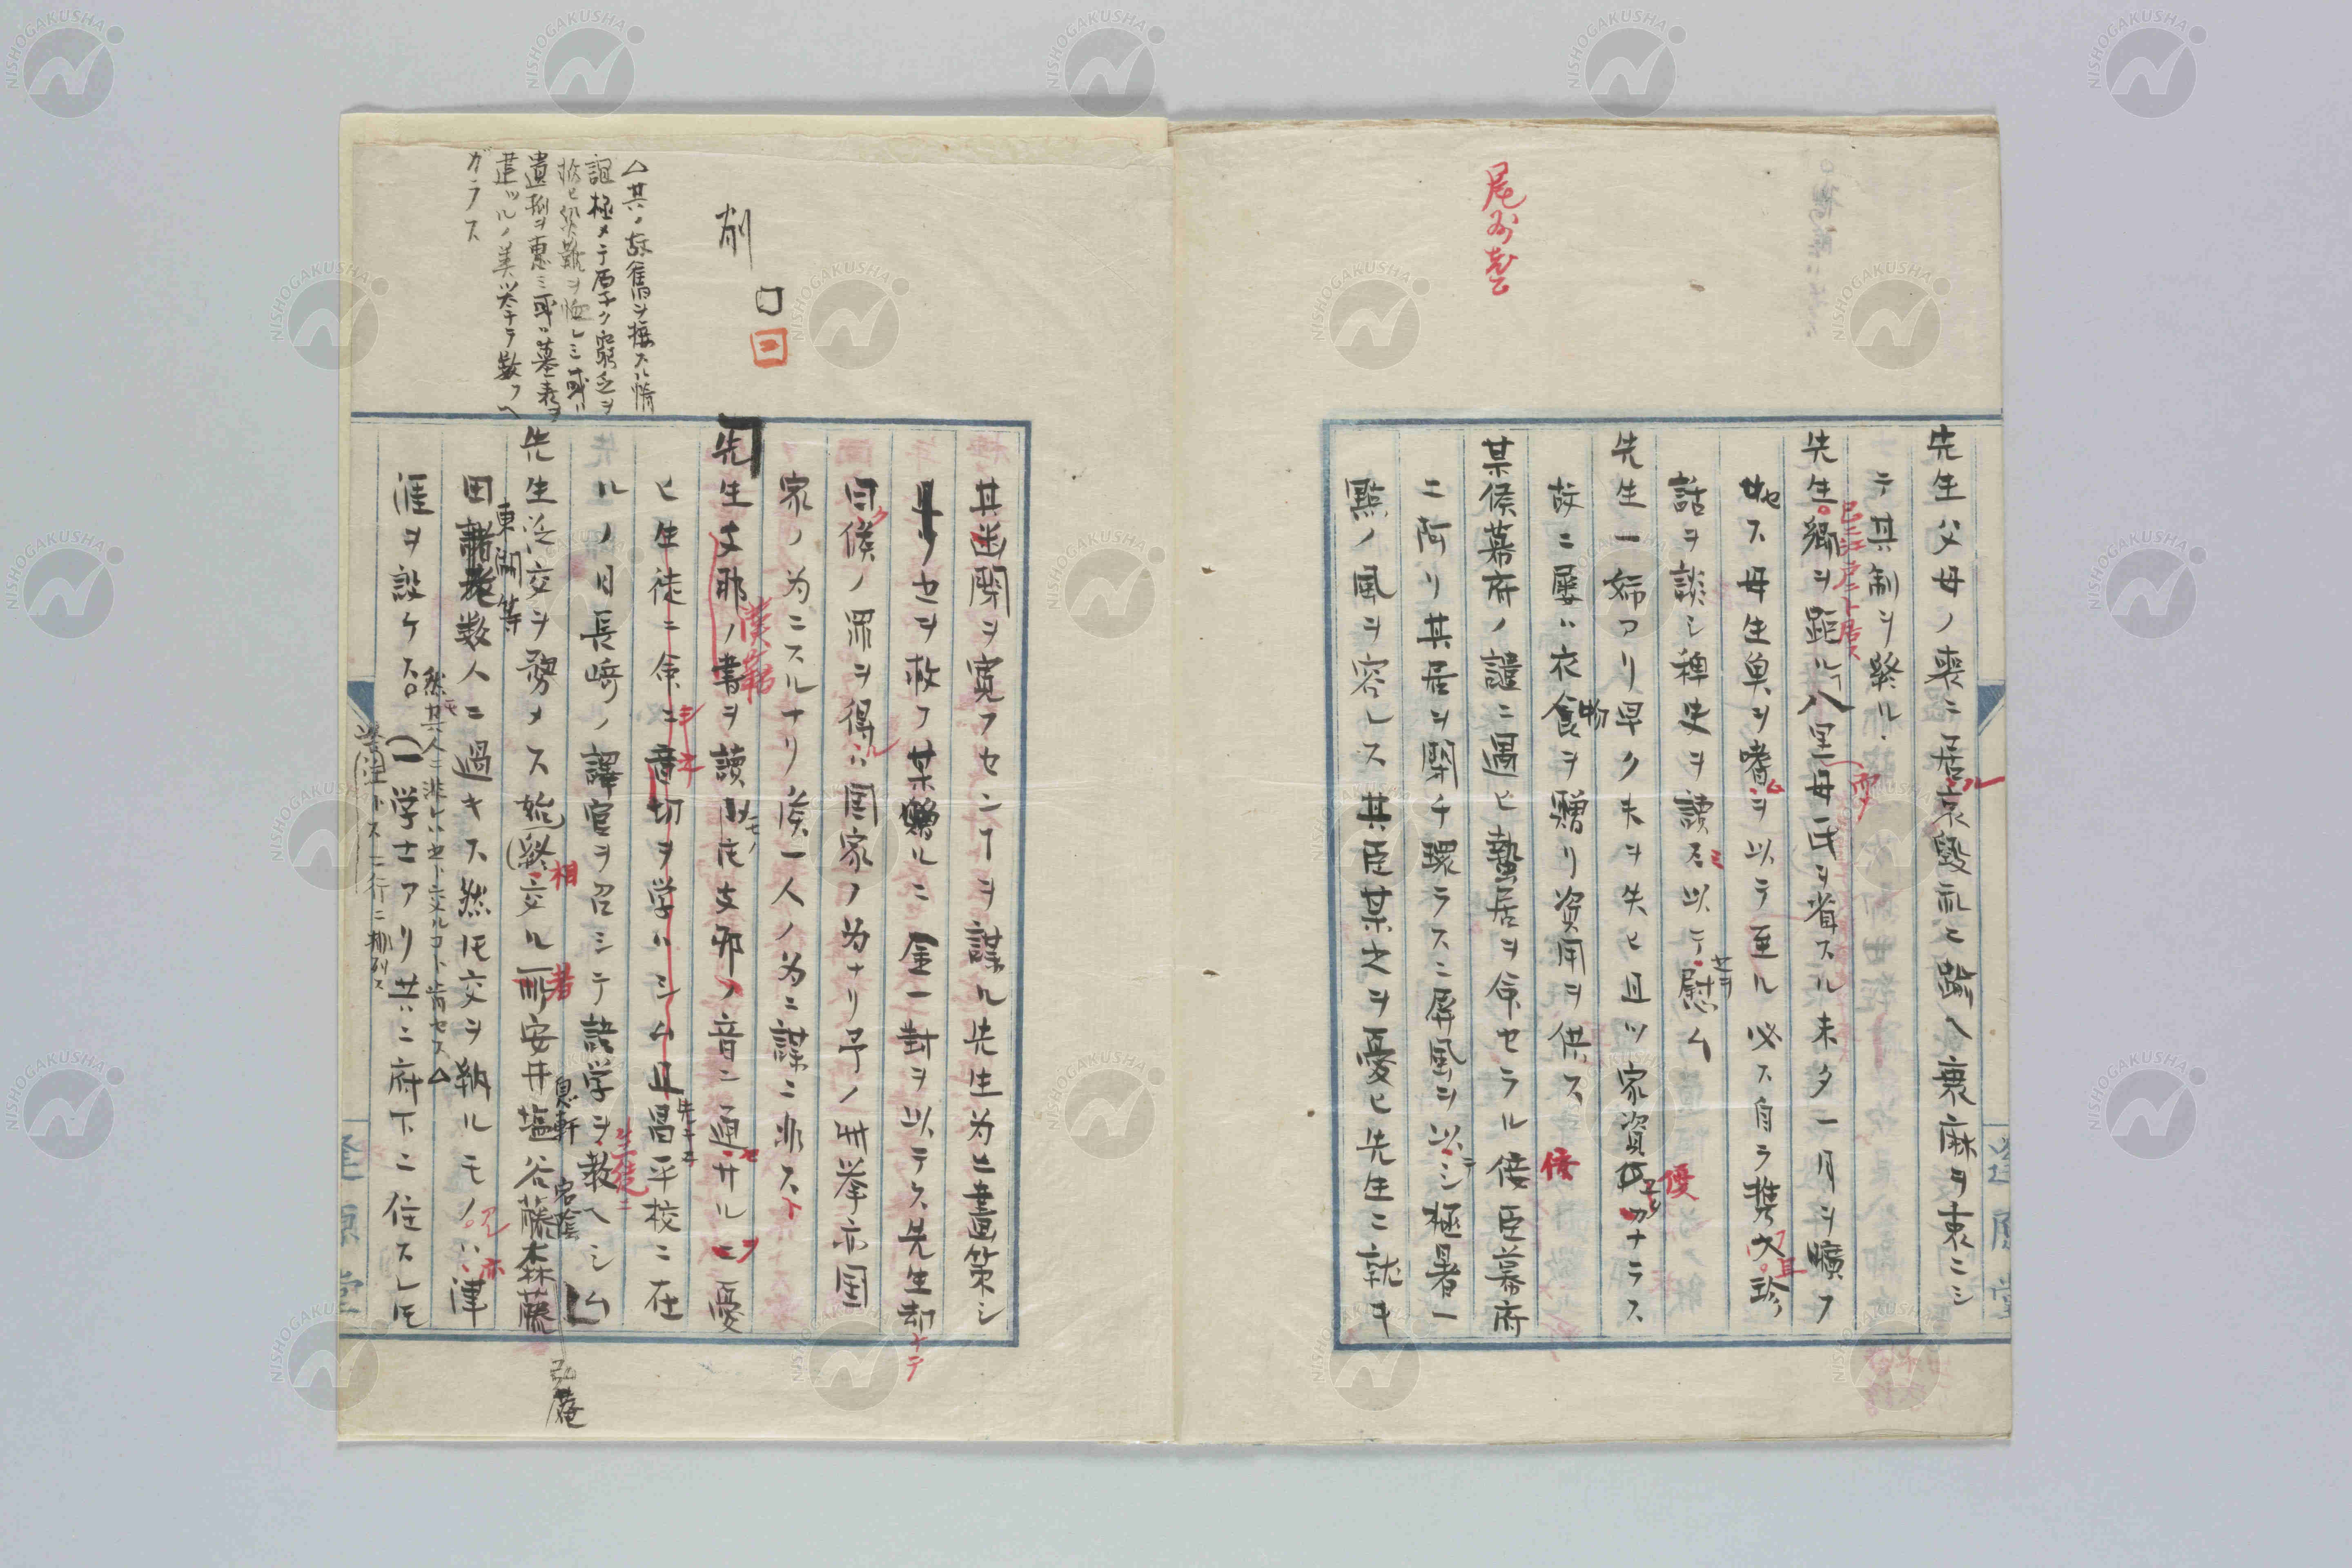 尾州老公
先生父母ノ喪ニ居ル哀毀礼ヒ踰ヘ衰麻ヲ衷ニシ
テ其制ヲ終ル
已ニ江戸ニト居ス
先生郷ヲ距ル八里母氏ヲ省スル未タ一月ヲ曠フ
セス母生魚ヲ嗜ムヲ以テ至ル必ス自ラ携ヘ且珍
話ヲ談シ稗史ヲ読ミ以テ慰ム
先生一姉アリ早ク夫ヲ失ヒ且ツ家資優カナラス
故ニ屡ハ衣物ヲ贈リ資用ヲ供ス
某侯幕府ノ譴ニ遇ヒ蟄居ヲ命セラル倭臣幕府
ニ阿リ其居ヲ閉チ環ラスニ屏風ヲ以テシ極暑一
點ノ風ヲ容レス其臣某之ヲ憂ヒ先生ニ就キ
其幽閉ヲ寛フセンヿヲ謀ル先生為ニ畫策シ
セヲ救フ某贈ルニ金一封ヲ以テス先生却テ
曰侯ノ罪ヲ得ルハ国家ノ為ナリ予ノ此挙亦国
家ノ為ニスルナリ侯一人ノ為ニ謀ニ非スト
先生支那ノ書ヲ讀モノ支那ノ音ニ通セサルヲ憂
漢籍
ヒ生徒ニ命シテ音切ヲ学ハシム且昌平校ニ在
ルノ日長崎ノ譯官ヲ召シテ語学ヲ教ヘシム
生徒ニ
先生泛交ヲ務メス始終相交ル者安井塩谷藤森藤
息軒
宕陰
弘庵
田東湖等数人ニ過キス然モ交ヲ執ルモノハ津
然モ其人ニ非レハ
涯ヲ設ケス一学士アリ共ニ府下ニ住スレモ
削
△其ノ故舊ヲ接スル情
誼極メテ厚ク窮乏ヲ
遺孤ヲ恵ミ或ハ墓表ヲ
建ツルノ美挙
数フヘ
カラス